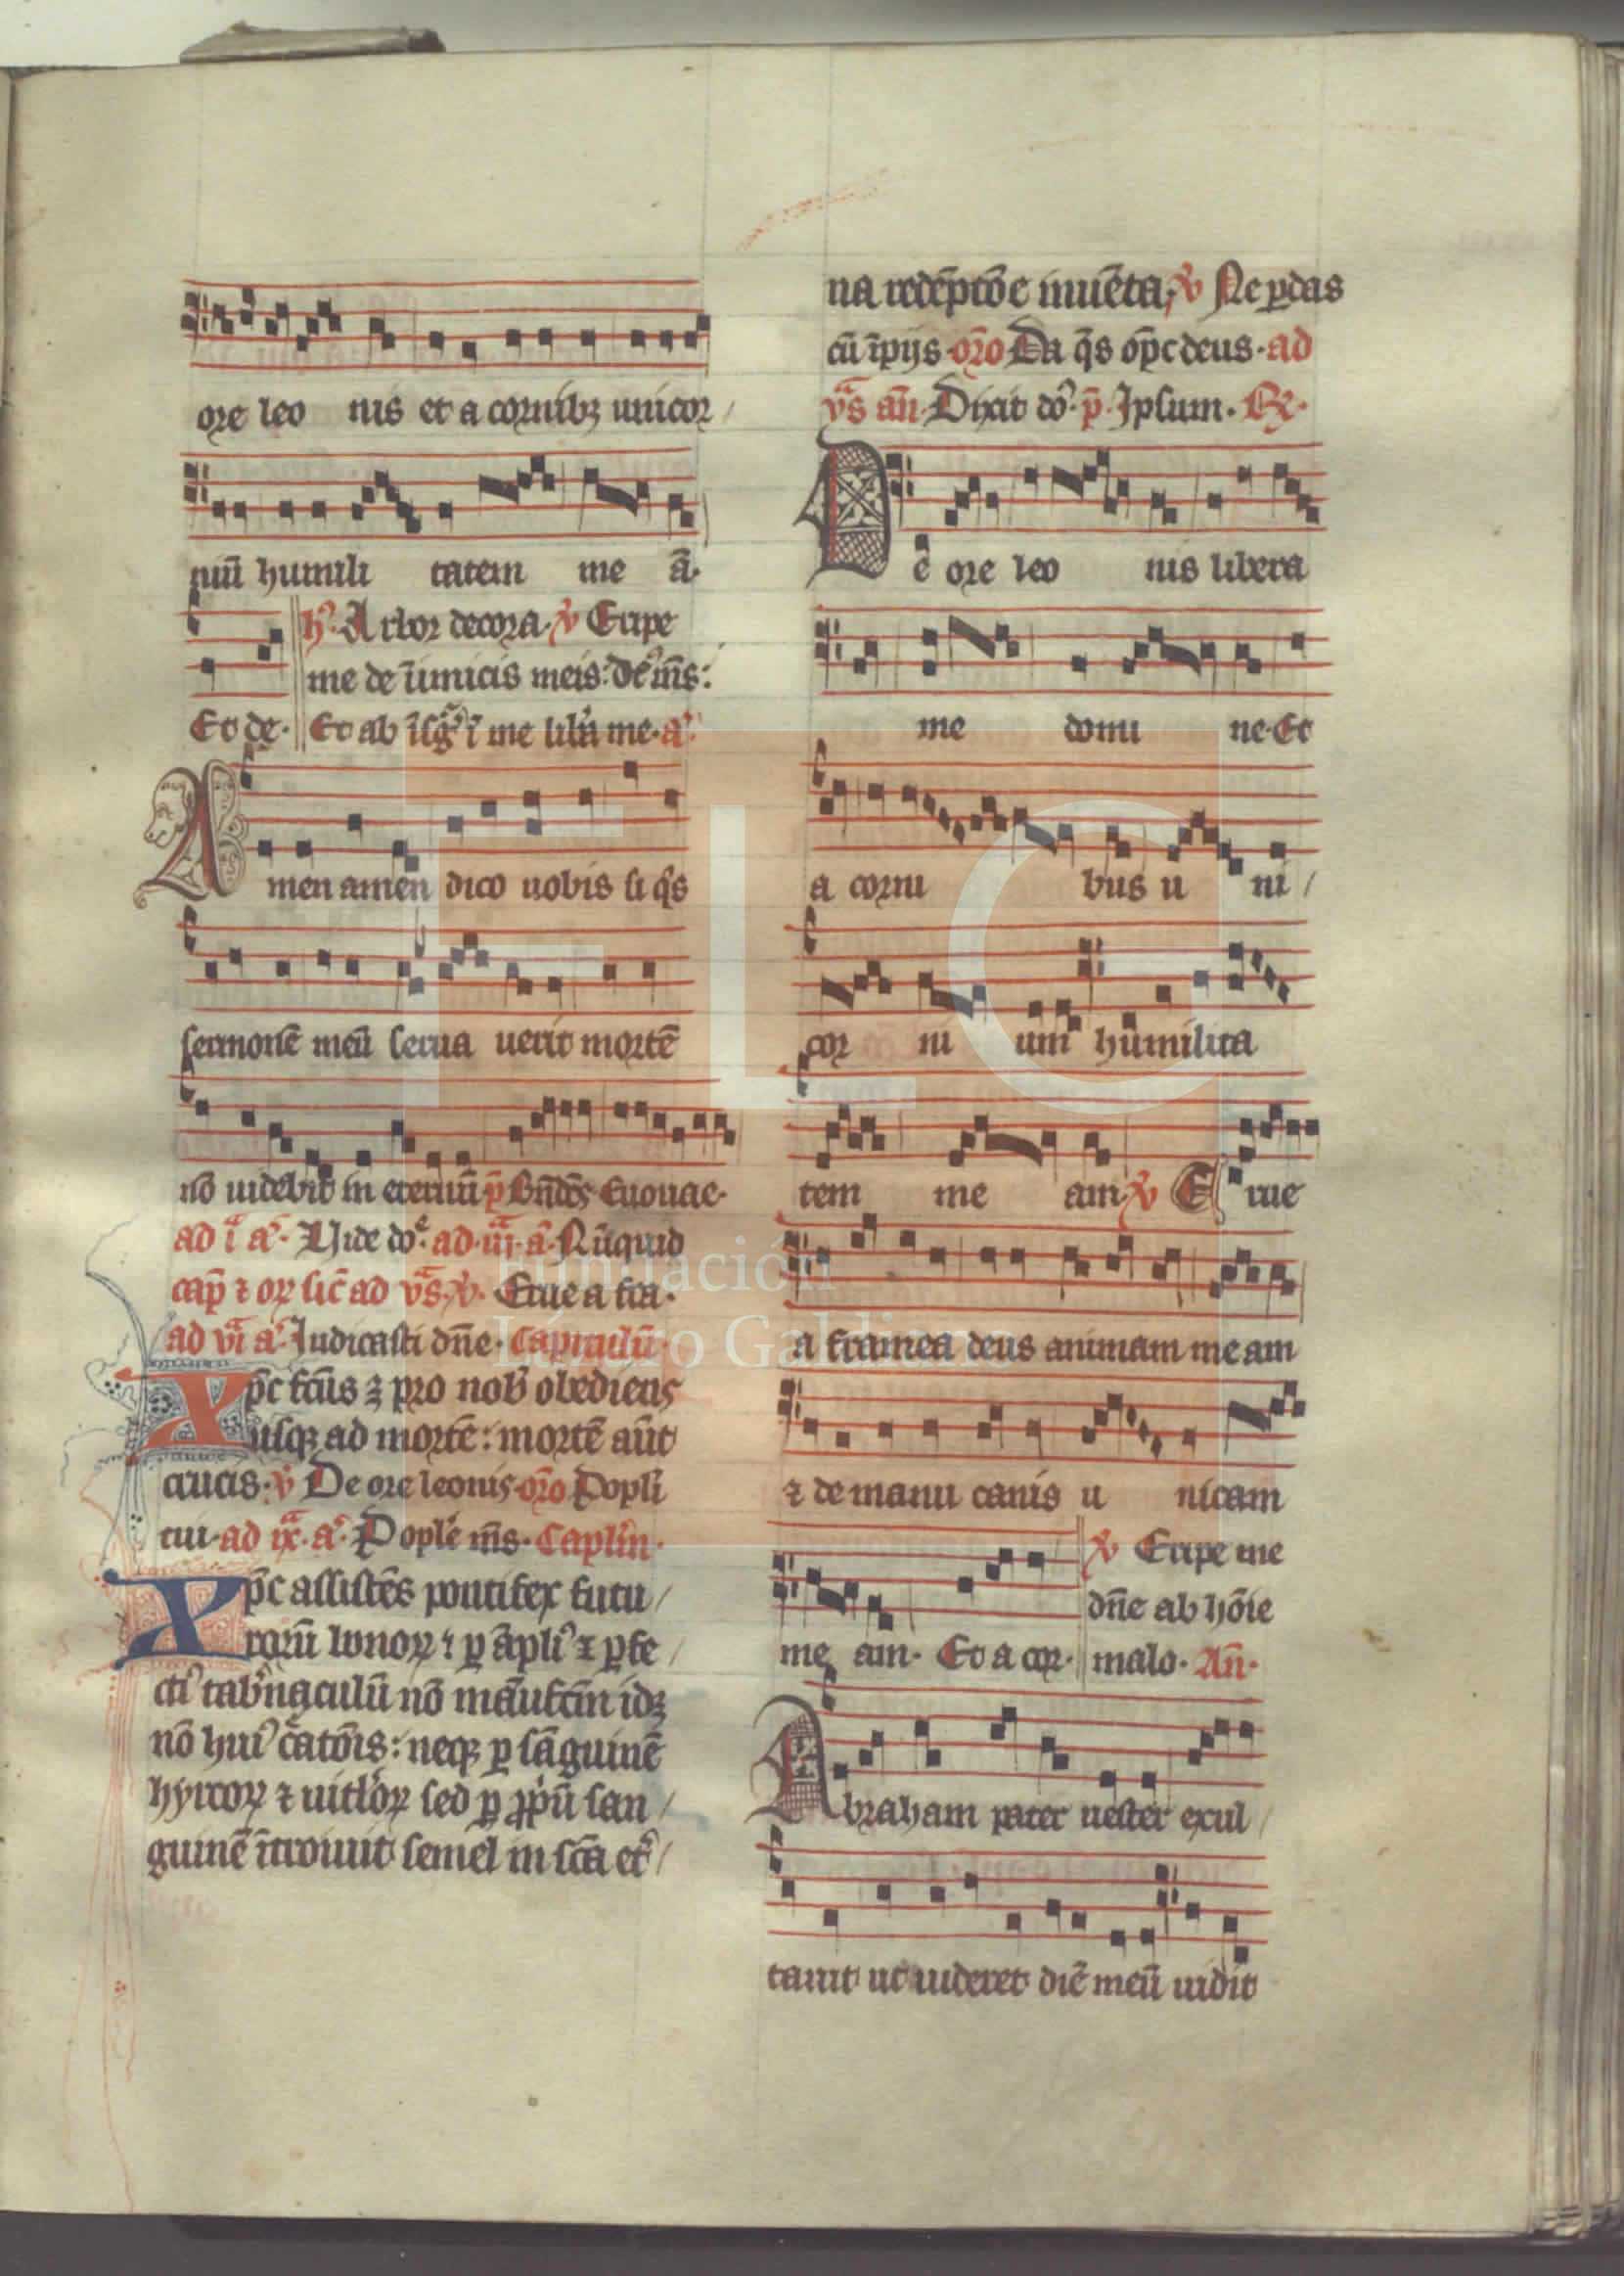 ore leo nis et a cornibꝫ unicor
niū humili tatem me ā.
h᷒. Arbor decora. ℣ Eripe
me de īimicis meis: de᷒ m̄s:
Et de. Et ab īsḡ ī me lib̄a me. a᷒.
Amen amen dico uobis si q̄s
sermonē meū serua uerit mortē
nō uidebit in eternū p̄ Bn̄dc̄s Euouae.
ad .i. a᷒. Vide do᷒. ad .iii. a᷒. Nūquid
cap̄ ⁊ oꝝ sic̄ ad vs̄. ℣. Erue a fra.
ad vi a᷒. Iudicasti dn̄e. Capitulū.
Xp̄c fcūs ꝫ pro nob̄ obediens
usqꝫ ad mortē: mortē aūt
crucis. ℣ De ore leonis. oro Popli
tui. ad ix. a᷒. Pople m̄s. Caplm̄.
Xp̄c assistēs pontifex futu
rorū bonoꝝ: ꝑ āpli᷒ ⁊ ꝑfe
cti᷒ tab̄naculū nō māufcm̄ idꝫ
nō hui᷒ c̄atōis: neqꝫ ꝑ sāguinē
hyrcoꝝ ⁊ uitloꝝ sed ꝑ ꝓp̄ū san
guinē ītroiuit semel in sc̄a et᷒
na redēptōe inuēta, ℣ Ne ꝑdas
cū īpijs. oro Da q̄s op̄c deus. ad
vs̄ an̄. Dixit do᷒. p̄. Ipsum. R̷.
De ore leo nis libera
me domi ne. Et
a cornu bus u ni
cor ni um humilita
tem me am ℣ E rue
a framea deus animam meam
⁊ de manu canis u nicam
me am. Et a cor. ℣ Eripe me
dn̄e ab hōie
malo. An̄.
Abraham pater uester exul
tauit ut uideret diē meū uidit
FLG
Fundación
Lázaro Galdiano